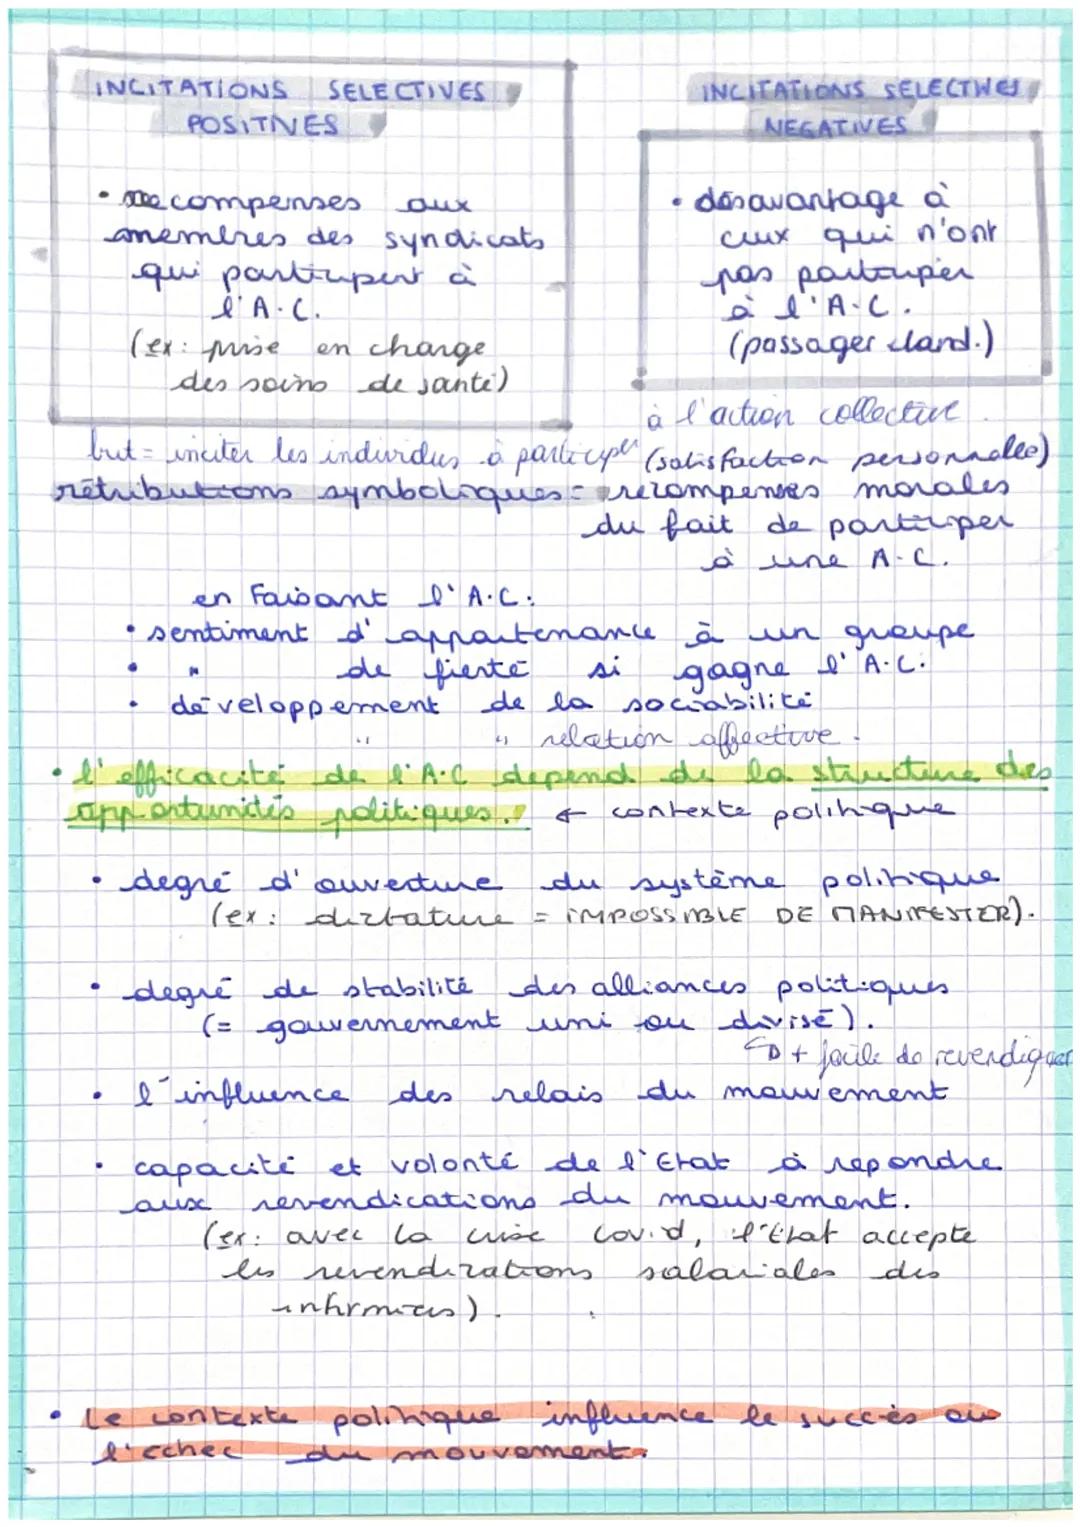 INCITATIONS SELECTIVES
POSITIVES
• recompenses aux
membres des syndicats
qui participent à
l'A.C.
(ex: prise en charge
des soins de santé)
INCITATIONS SELECTIVES
NEGATIVES
• désavantage à
ceux qui n'ont
pas participer
à l'A.C.
(passager cland.)
but = inciter les individus à participer à l'action collective.
(satisfaction personnelle)
rétributions symboliques = recompenses morales
du fait de participer
à une A.C.
en faisant l'A.C:
• sentiment d'appartenance à un groupe
• " de fierté si gagne l'A.C.
• développement de la sociabilité
" " relation affective.
• l'efficacité de l'A.C depend de la structure des
opportunités politiques. ← contexte politique
• degré d'ouverture du système politique
(ex: dictature = IMPOSSIBLE DE MANIFESTER).
• degré de stabilité des alliances politiques
(= gouvernement uni ou divisé).
↳ + facile de revendiquer
• l'influence des relais du mouvement
• capacité et volonté de l'Etat à repondre
aux revendications du mouvement.
(ex: avec la crise covid, l'Etat accepte
les revendications salariales des
infirmières).
• Le contexte politique influence le succès ou
l'echec du mouvement.